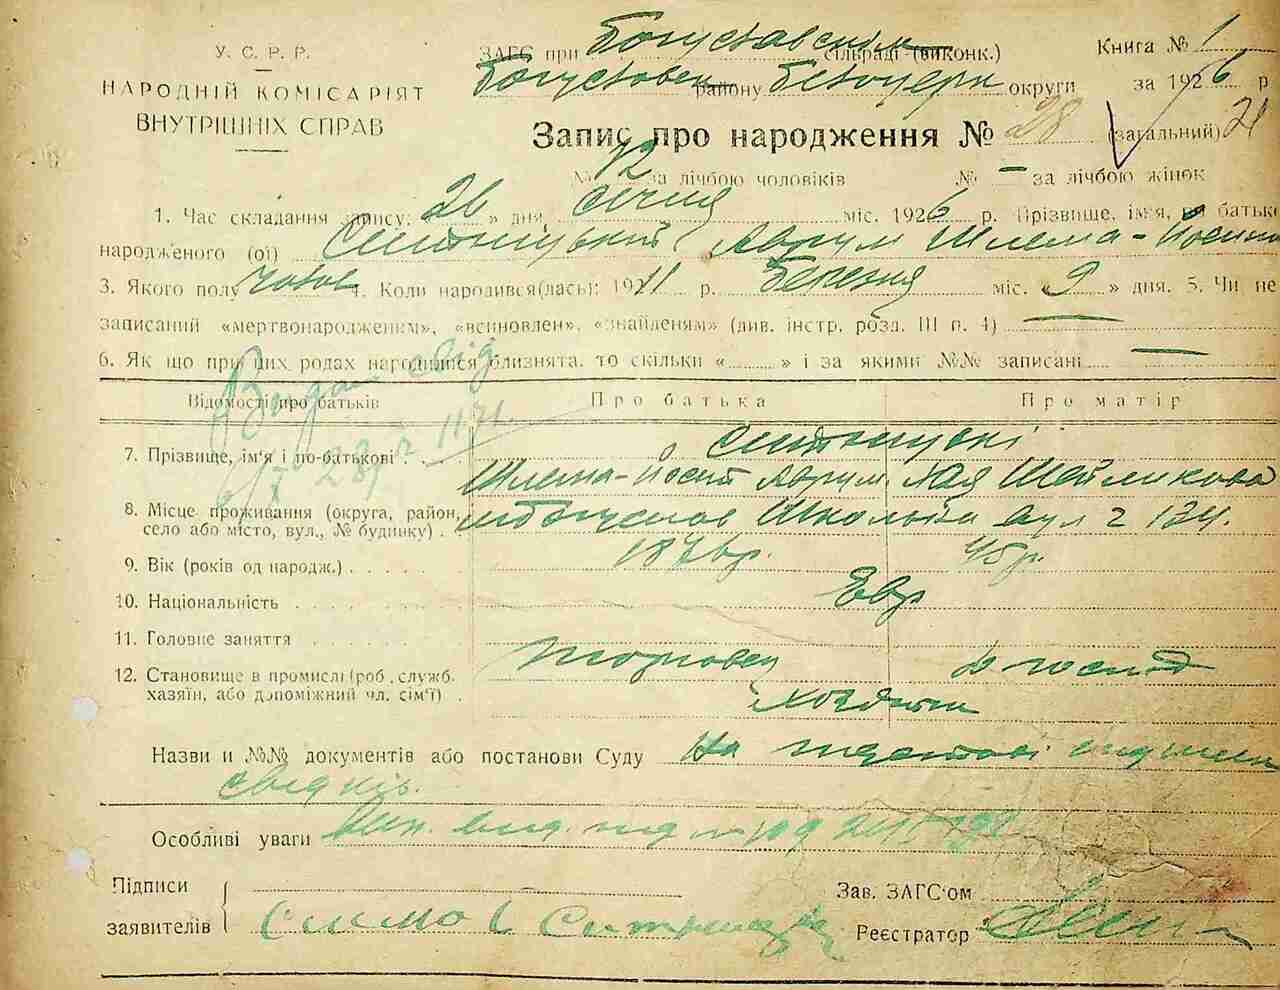 У.С.Р.Р.
НАРОДНІЙ КОМІСАРІЯТ
ВНУТРІШНІХ СПРАВ
ЗАГС при Богуславськім сільраді (виконк.)
Богуславськ району Білоцерк округи
Книга № 1
за 1926 р
Запис про народження № 28 (загальний) 21
№ 12 за лічбою чоловіків № – за лічбою жінок
1. Час складання запису: 26 » дня січня міс. 1926 р. Прізвище, ім'я, по батьк
народженого (ої) Аврум Шлема-Йосип
3. Якого полу чолов 4. Коли народився(лась): 1911 р. березня міс. « 9 » дня. 5. Чи не
записаний «мертвонародженим», «всиновлен», «знайденям» (див. інстр. розд. III п. 4)
6. Як що при цих родах народилися близнята, то скільки « » і за якими №№ записані
Відомості про батьків Про батька Про матір
Видано свід
28/ 71.
7. Прізвище, ім'я і по-батькові
Шлема-Йосип Аврум. Хая Шейликова
8. Місце проживання (округа, район,
село або місто, вул., № будинку) Шкільна вул 134.
9. Вік (років од народж.) 1876р. 45р.
10. Національність Евр
11. Головне заняття
торговец д господ
12. Становище в промислі (роб., служб.
хазяїн, або допоміжний чл. сім'ї)
Назви и №№ документів або постанови Суду На підставі
свідків.
Особливі уваги
Підписи
заявителів
Зав. ЗАГС'ом
Реєстратор